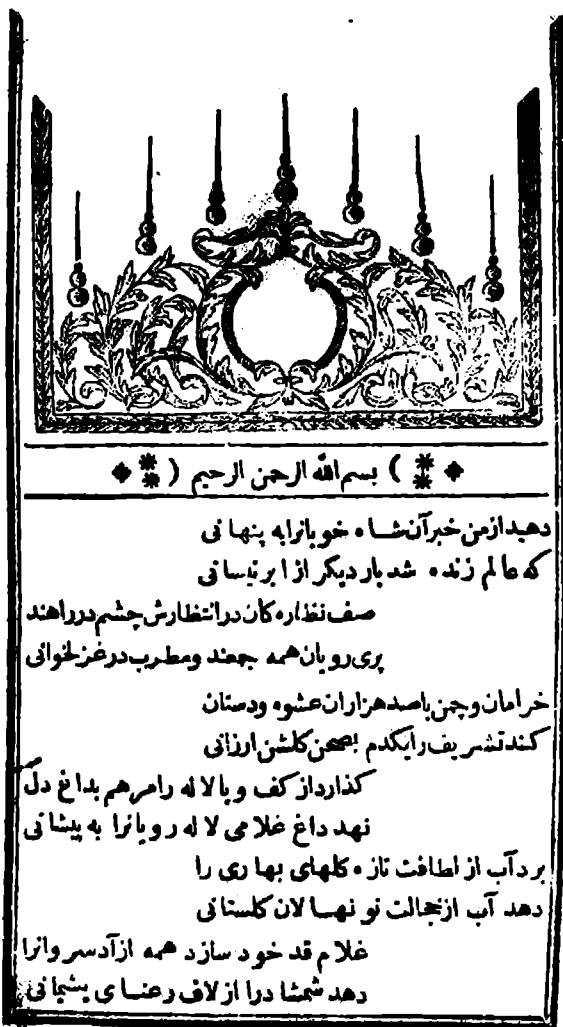 بسم الله الرحمن الرحيم
دهيد از من خبر آن شاه خوبانرا به پنهانی
که عالم زنده شد بار ديکر از ابر نيسانی
صف نظاره کان در انتظارش چشم در راهند
پری رويان همه جمعند ومطرب در غزلخوانی
خرامان وچمن باصد هزاران عشوه ودستان
کند تشريف را يکدم بصحن کلشن ارزانی
کذارد از کف و پا لاله را مرهم بداغ دل
نهد داغ غلامی لاله رويانرا به پيشانی
برد آب از لطافت تازه کلهای بهاری را
دهد آب از خجالت نو نهالان کلستانی
غلام قد خود سازد همه ازآد سروانرا
دهد شمشاد را از لاف رعنای پشيمانی